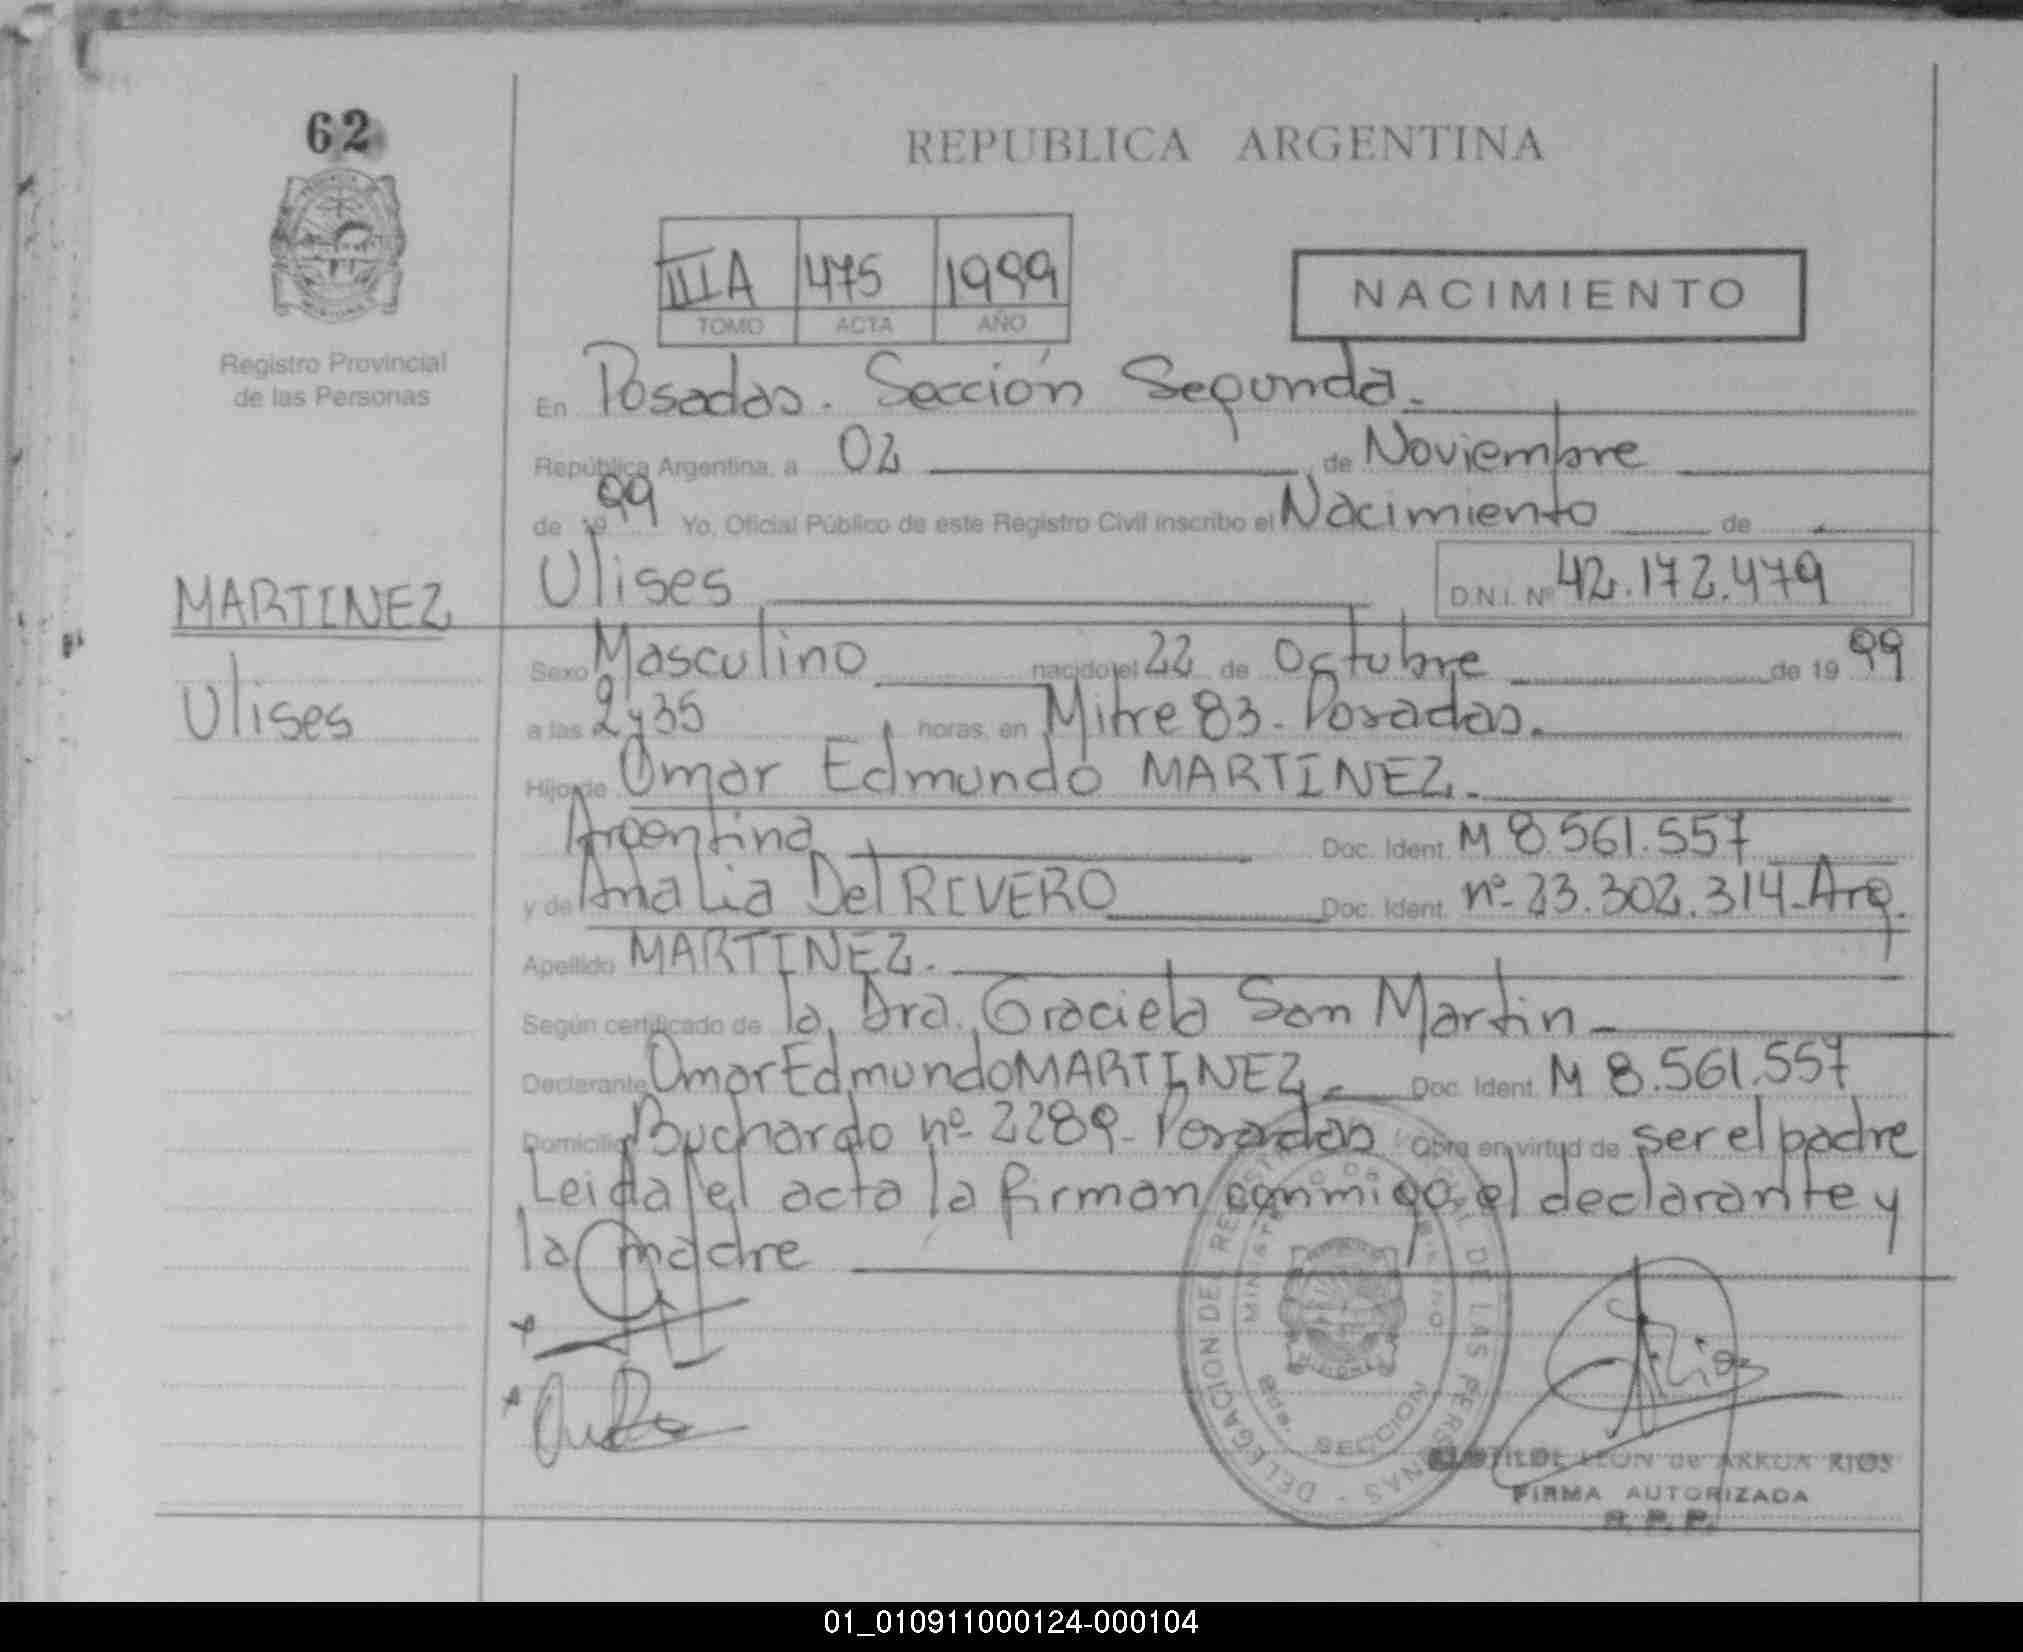 62
REPUBLICA ARGENTINA
IIIA 475 1999
TOMO ACTA AÑO
NACIMIENTO
Registro Provincial
de las Personas
En Posadas. Sección Segunda.
República Argentina, a 02 de Noviembre
de 1999 Yo, Oficial Público de este Registro Civil inscribo el Nacimiento de
Ulises D.N.I. Nº 42.172.479
MARTINEZ
Ulises
Sexo Masculino nacido el 22 de Octubre de 1999
a las 2 y 35 horas, en Mitre 83. Posadas.
Hijo de Omar Edmundo MARTINEZ.
Argentina Doc. Ident. M 8.561.557
y de Analia Del RIVERO Doc. Ident. nº 23.302.314-Arg.
Apellido MARTINEZ.
Según certificado de la Dra. Graciela San Martin
Declarante Omar Edmundo MARTINEZ. Doc. Ident. M 8.561.557
Domicilio Buchardo nº 2289. Posadas Obra en virtud de ser el padre
Leida el acta la firman conmigo el declarante y
la madre
DELEGACION DEL REGISTRO PROVINCIAL DE LAS PERSONAS
MINISTERIO DE GOBIERNO
SECCION
LEON de ARRUA RIOS
FIRMA AUTORIZADA
R. P. P.
01_010911000124-000104